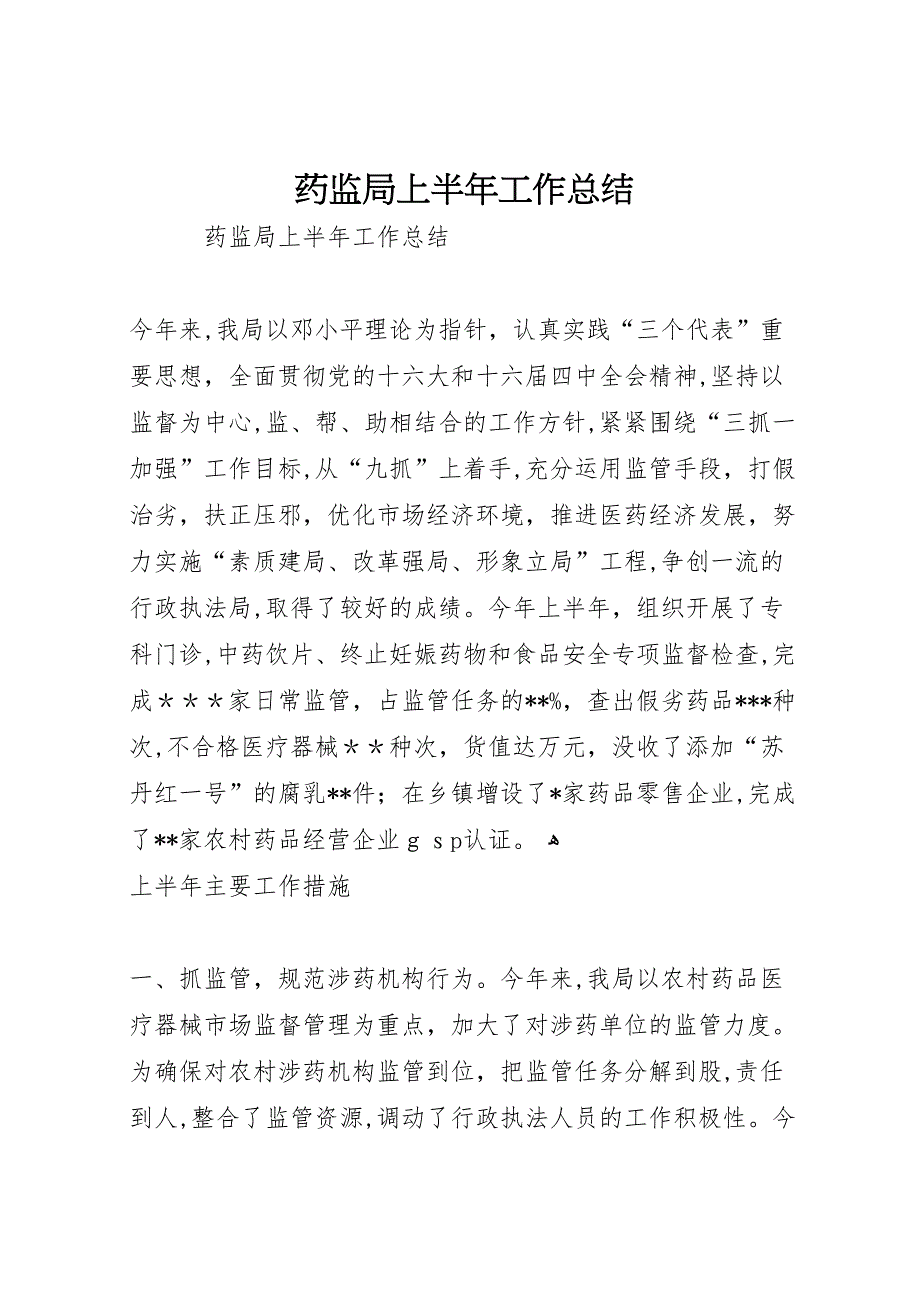 药监局上半年工作总结
药监局上半年工作总结
今年来,我局以邓小平理论为指针，认真实践“三个代表”重
要思想，全面贯彻党的十六大和十六届四中全会精神,坚持以
监督为中心,监、帮、助相结合的工作方针,紧紧围绕“三抓一
加强”工作目标,从“九抓”上着手,充分运用监管手段，打假
治劣，扶正压邪，优化市场经济环境，推进医药经济发展，努
力实施“素质建局、改革强局、形象立局”工程,争创一流的
行政执法局,取得了较好的成绩。今年上半年，组织开展了专
科门诊,中药饮片、终止妊娠药物和食品安全专项监督检查,完
成＊＊＊家日常监管，占监管任务的**%，查出假劣药品***种
次,不合格医疗器械＊＊种次，货值达万元，没收了添加“苏
丹红一号”的腐乳**件；在乡镇增设了*家药品零售企业,完成
了**家农村药品经营企业ｇｓp认证。 ﻫ
上半年主要工作措施
一、抓监管，规范涉药机构行为。今年来,我局以农村药品医
疗器械市场监督管理为重点，加大了对涉药单位的监管力度。
为确保对农村涉药机构监管到位，把监管任务分解到股,责任
到人,整合了监管资源,调动了行政执法人员的工作积极性。今